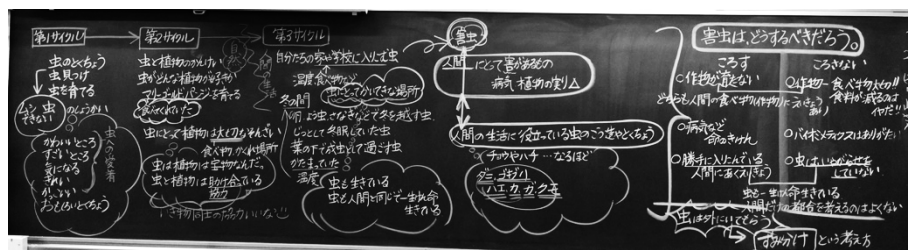 第1サイクル
虫のとくちょう
虫見つけ
虫を育てる
虫への愛着
かわいいところ
すごいところ
気になる
きれい
おもしろいとくちょう
第2サイクル
虫と植物のかんけい
虫がどんな植物が好きか
マリーゴールド パンジーを育てる
食べてくれていた
虫にとって植物は大切なそんざい
食べもの かくれ場所
虫は植物は宝物なんだ。
虫と植物は助け合っている
協力
第3サイクル
自分たちの家や学校に入りこむ虫
温度 食べ物など
虫にとってかいてきな場所
冬の間
卵、よう虫、さなぎなどで冬を越す虫
じっとして冬眠していた虫
葉の下で成虫として過ごす虫
かたまっていた
温度
虫も生きている
虫も人間と同じで一生けん命
生きている
害虫
人間にとって害があるもの
病気 植物の実り△
人間の生活に役立っている虫のこうせきやとくちょう
チョウやハチ…なるほど
ダニ、ゴキブリ
ハエ、カ、ガ、クモ
害虫は、どうするべきだろう。
ころす
○作物が育たない
どちらも人間の食べ物(作物)に
○病気など
命のきけん
○勝手に入りこんでいる
人間にあくえいきょう
ころさない
○作物…食べ物大切!!
食料が減るのは
イヤだ!!
○バイオミメティクスはありがたい
○虫はいやがらせを
していない
虫も一生けん命生きている
人間だけの都合を考えるのはよくない
虫は外にいてもらう
すみわけ という考え方